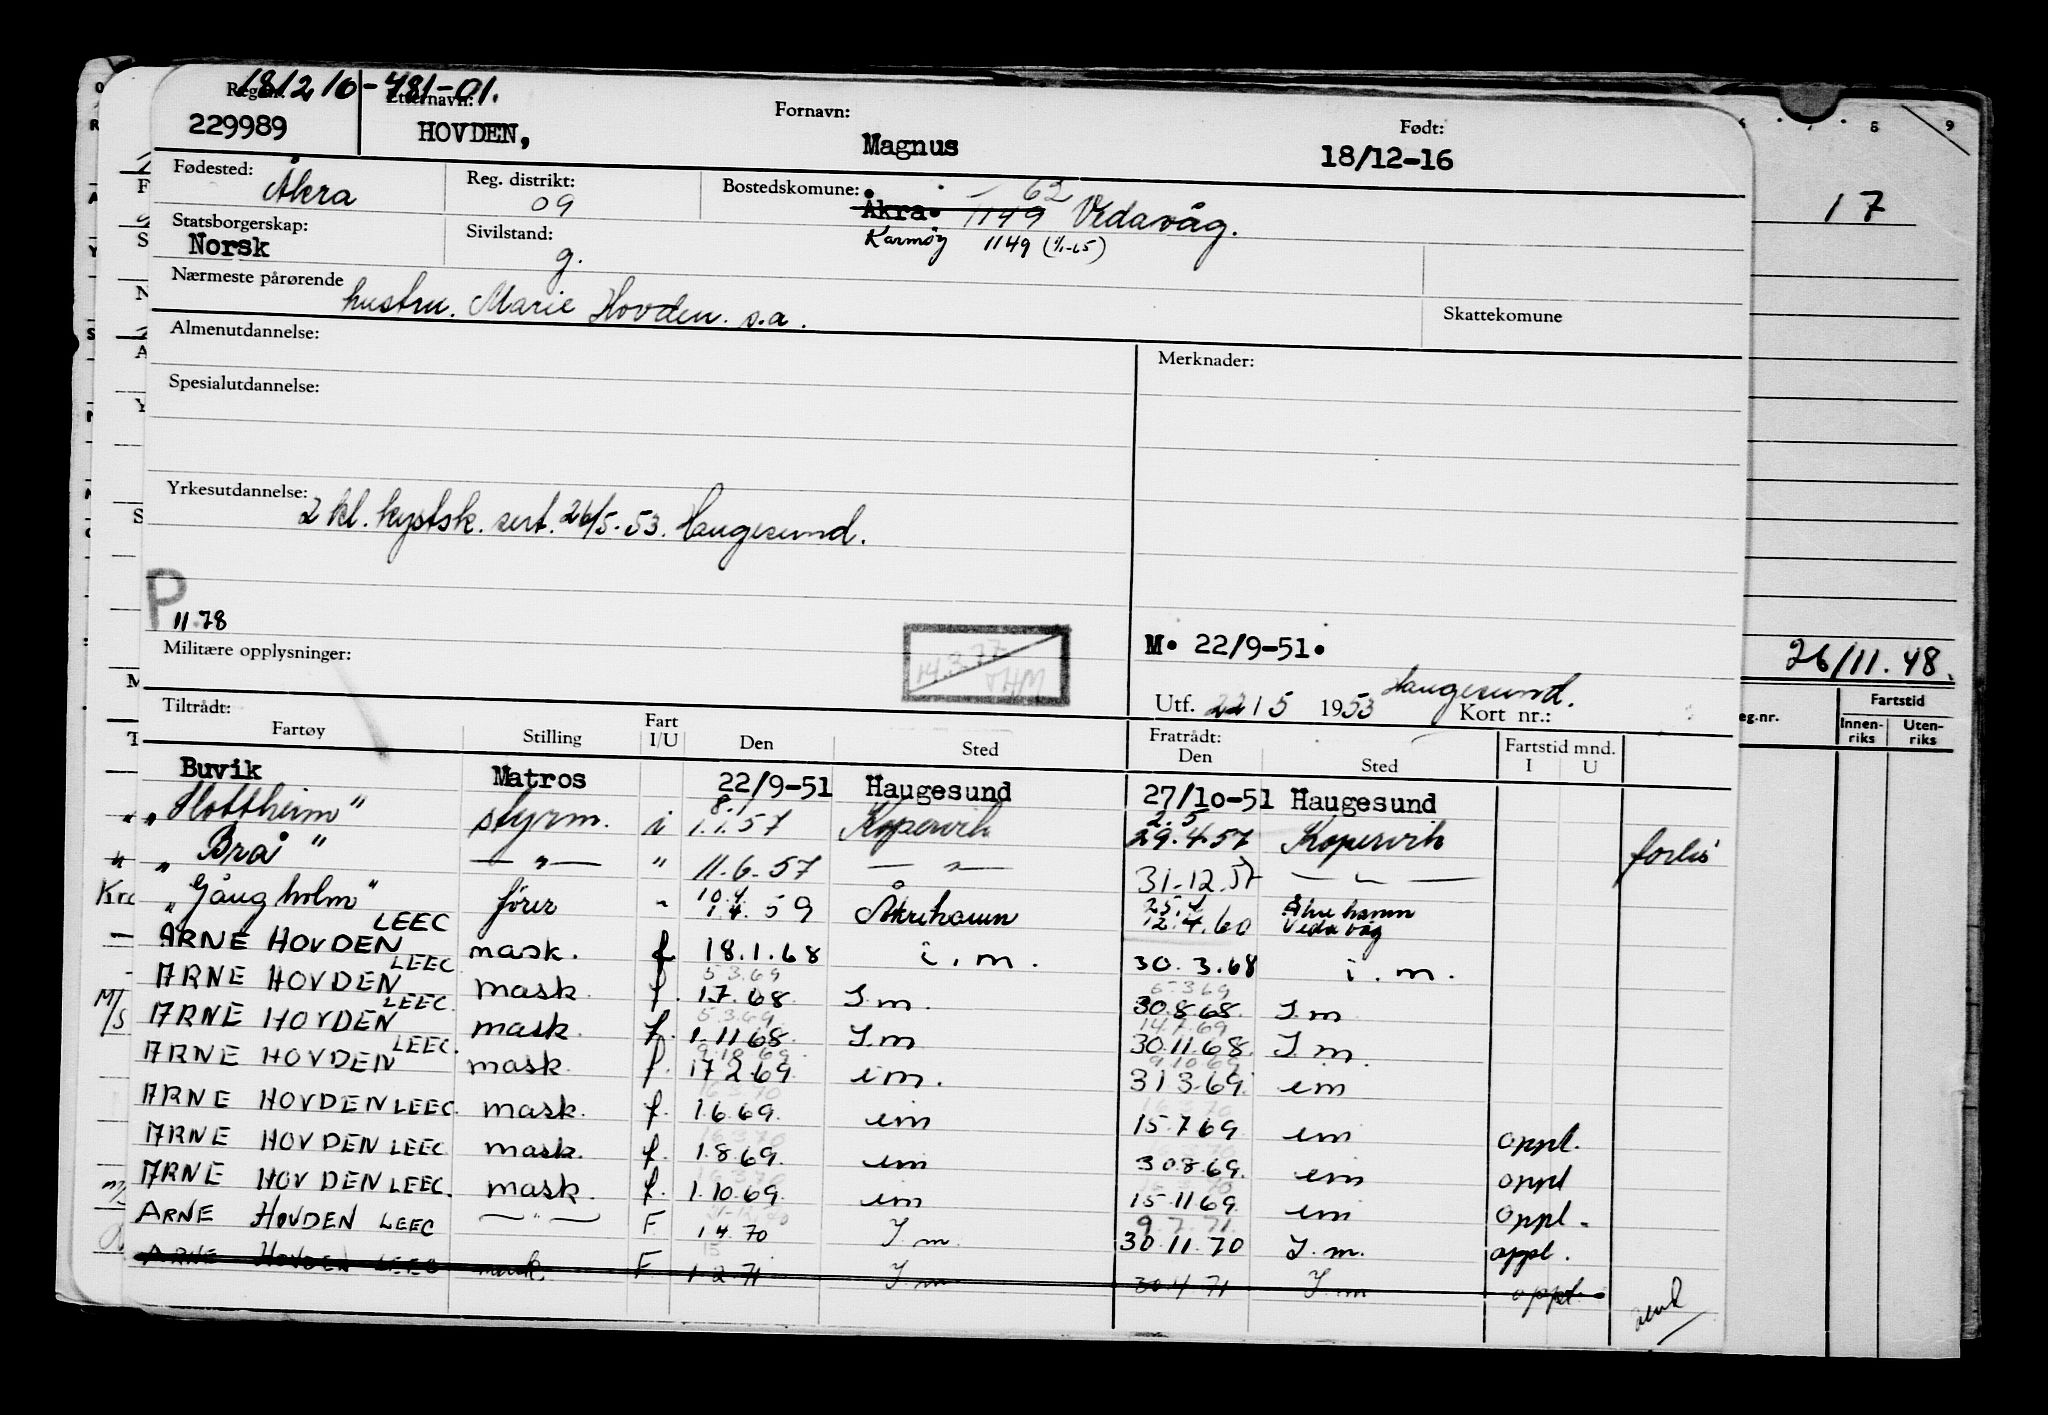 181216-481-01.
Reg.nr. Etternavn: Fornavn: Født:
229989 HOVDEN, Magnus 18/12-16
Fødested: Åkra Reg. distrikt: 09 Bostedskomune: Åkra. 1149 62 Vedavåg.
Karmøy 1149 (1/1-65)
Statsborgerskap: Norsk Sivilstand: g.
Nærmeste pårørende hustru. Marie Hovden. s.a.
Skattekomune
Almenutdannelse: Merknader:
Spesialutdannelse:
Yrkesutdannelse: 2 kl. kystsk. sert. 26/5-53. Haugesund.
P
11.78
Militære opplysninger: 14.3.77 M. 22/9-51.
Utf. 22/5 1953 Haugesund. Kort nr.:
Tiltrådt: Fratrådt:
Fartøy Stilling Fart I/U Den Sted Den Sted Fartstid mnd. I U
Buvik Matros 22/9-51 Haugesund 27/10-51 Haugesund
"Slottheim" styrm. i 8.1 1.1.57 Kopervik 2.5 29.4.57 Kopervik forlis
"Brå" — " — " 11.6.57 — " — 31-12.57 — " —
"Gåugholm" fører " 10.4 1.4.59 Åkrehamn 25.4 12.4.60 Åkrehamn Vedavåg
ARNE HOVDEN LEEC mask. f 18.1.68 i.m. 30.3.68 i.m.
5.3.69 6.3.69
ARNE HOVDEN LEEC mask. f. 1.7.68. I.m. 30.8.68. I.m
5.3.69 14.7.69
ARNE HOVDEN LEEC. mask. f. 1.11.68 I.m 30.11.68. I.m.
9.10.69. 9.10.69
ARNE HOVDEN LEEC. mask. f. 17.2.69. im. 31.3.69. im
16.3.70 16.3.70
ARNE HOVDEN LEEC. mask. f. 1.6.69. im 15.7.69 im oppl.
16.3.70
ARNE HOVDEN LEEC mask. f. 1.8.69. im 30.8.69. im oppl
16.3.70
ARNE HOVDEN LEEC. mask. f. 1.10.69. im 15.11.69 im oppl.
9.7.71.
ARNE HOVDEN LEEC — " — F 1.4.70 I m. 30.11.70 I.m. oppl.
15
ARNE HOVDEN LEEC mask. F 1.2.71 I.m 30.4.71 I.m oppl.
17
26/11.48.
eg.nr. Fartstid
Innen-riks Uten-riks
Kra
M/S